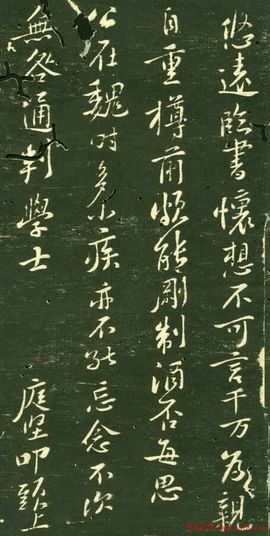 悠遠臨書懷想不可言千万為親
自重樽前頗能剛制酒否每思
公在魏時多小疾亦不能忘念不次
無咎通判學士
庭堅叩頭上